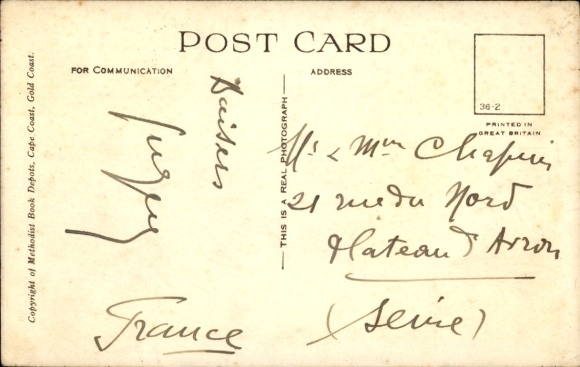 POST CARD
FOR COMMUNICATION
ADDRESS
36-2
PRINTED IN
GREAT BRITAIN
Copyright of Methodist Book Depots, Cape Coast, Gold Coast.
THIS IS A REAL PHOTOGRAPH
Baisers
Mr & Mme
21 rue du Nord
Plateau d'Avron
(Seine)
France